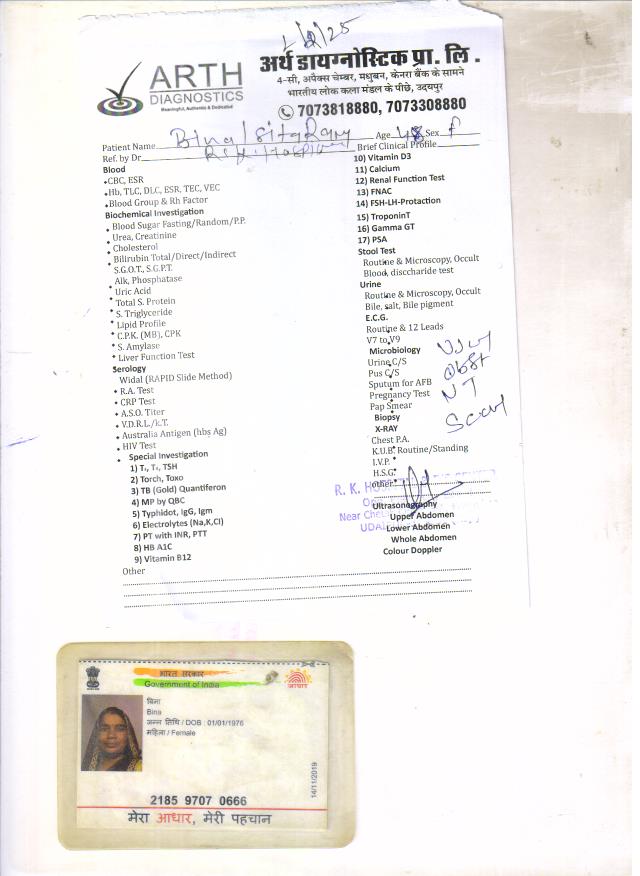 1/2/25
ARTH
DIAGNOSTICS
Meaningful, Authentic & Dedicated
अर्थ डायग्नोस्टिक प्रा. लि.
4-सी, अपैक्स चेम्बर, मधुबन, केनरा बैंक के सामने
भारतीय लोक कला मंडल के पीछे, उदयपुर
7073818880, 7073308880
Patient Name Bina/sitaRam Age 48 Sex f
Ref. by Dr. Brief Clinical Profile
Blood
CBC, ESR
Hb, TLC, DLC, ESR, TEC, VEC
Blood Group & Rh Factor
Biochemical Investigation
Blood Sugar Fasting/Random/P.P.
Urea, Creatinine
Cholesterol
Bilirubin Total/Direct/Indirect
S.G.O.T., S.G.P.T.
Alk, Phosphatase
Uric Acid
Total S. Protein
S. Triglyceride
Lipid Profile
C.P.K. (MB), CPK
S. Amylase
Liver Function Test
Serology
Widal (RAPID Slide Method)
R.A. Test
CRP Test
A.S.O. Titer
V.D.R.L./k.T.
Australia Antigen (hbs Ag)
HIV Test
Special Investigation
1) T₃, T₄, TSH
2) Torch, Toxo
3) TB (Gold) Quantiferon
4) MP by QBC
5) Typhidot, IgG, Igm
6) Electrolytes (Na,K,Cl)
7) PT with INR, PTT
8) HB A1C
9) Vitamin B12
Other
10) Vitamin D3
11) Calcium
12) Renal Function Test
13) FNAC
14) FSH-LH-Protaction
15) TroponinT
16) Gamma GT
17) PSA
Stool Test
Routine & Microscopy, Occult
Blood, disccharide test
Urine
Routine & Microscopy, Occult
Bile, salt, Bile pigment
E.C.G.
Routine & 12 Leads
V7 to V9
Microbiology
Urine C/S
Pus C/S
Sputum for AFB
Pregnancy Test
Pap Smear
Biopsy
X-RAY
Chest P.A.
K.U.B. Routine/Standing
I.V.P.
H.S.G.
other
Ultrasonography
Upper Abdomen
Lower Abdomen
Whole Abdomen
Colour Doppler
Obst
NT
Scan
R. K. HOS
भारत सरकार
Government of India
आधार
बिना
Bina
जन्म तिथि / DOB : 01/01/1976
महिला / Female
14/11/2019
2185 9707 0666
मेरा आधार, मेरी पहचान